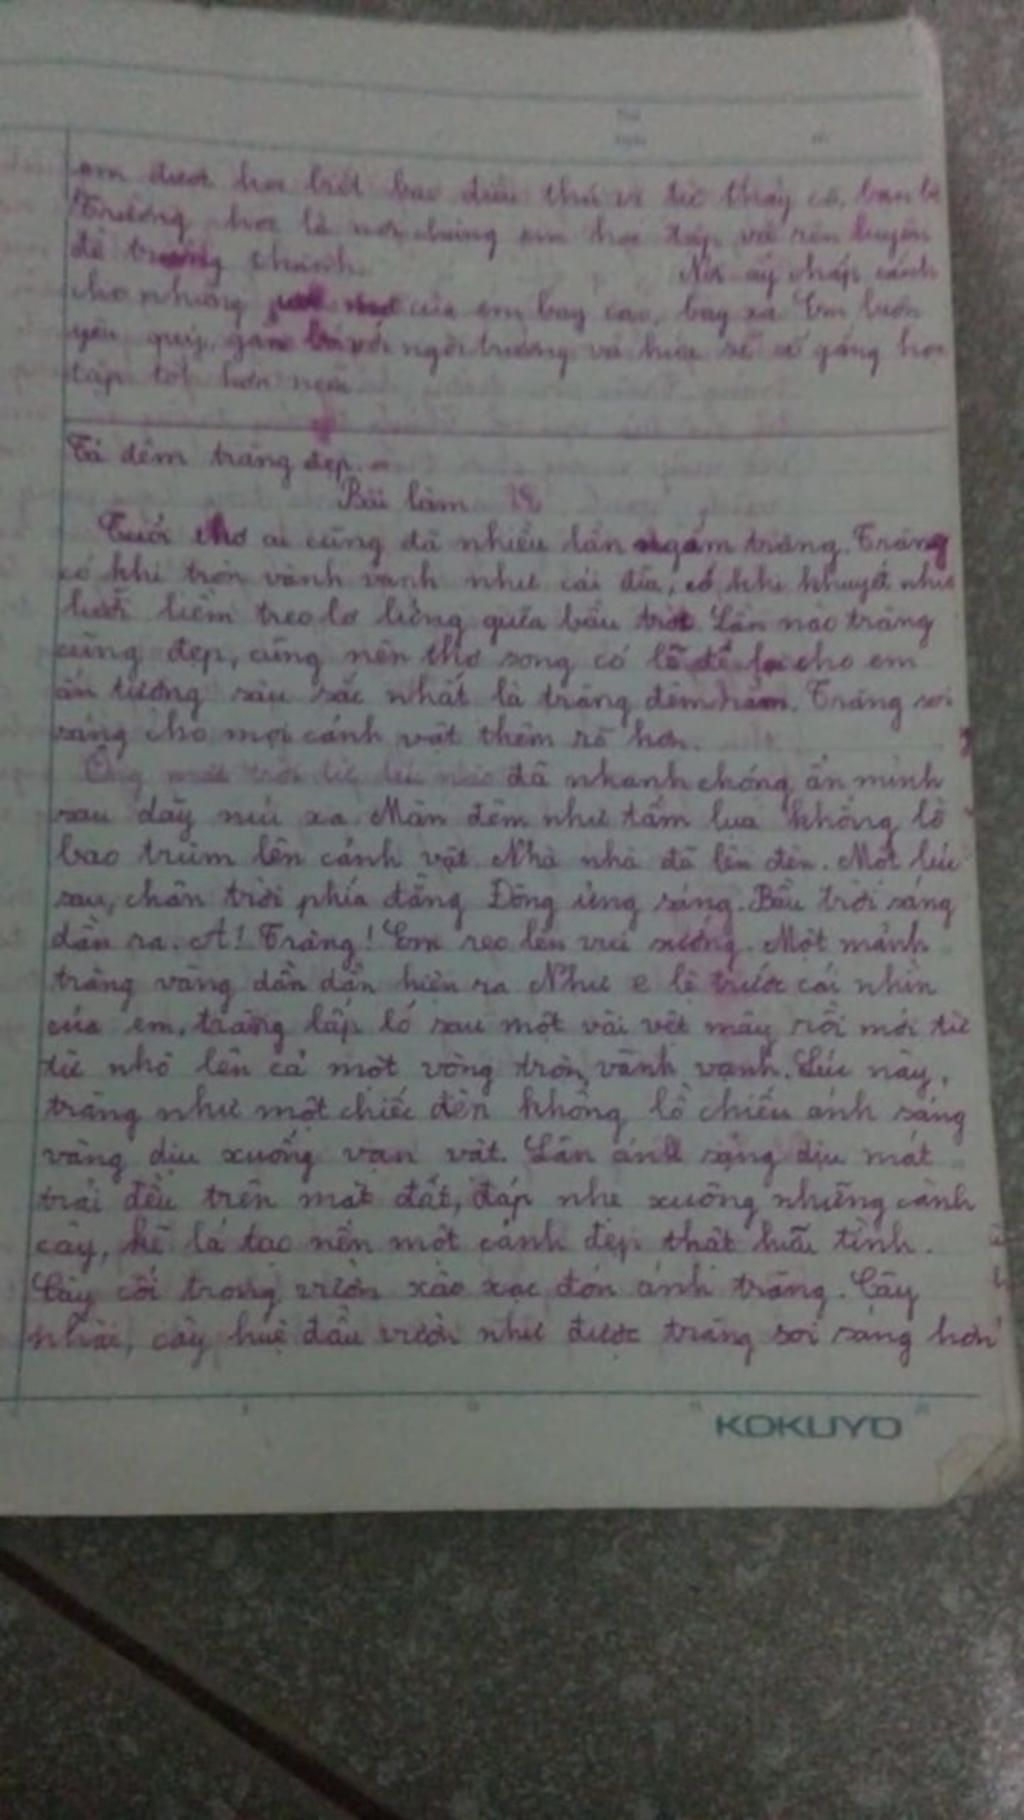 em được học biết bao điều thú vị từ thầy cô, bạn bè
Trường học là nơi chúng em học tập và rèn luyện
để trưởng thành. Nơi ấy chắp cánh
cho những của em bay cao, bay xa Em luôn
yêu quý, gắn bó với ngôi trường và hứa sẽ cố gắng học
tập tốt hơn nữa
Tả đêm trăng đẹp.
Bài làm
Tuổi thơ ai cũng đã nhiều lần ngắm trăng. Trăng
có khi tròn vành vạnh như cái đĩa, có khi khuyết như
lưỡi liềm treo lơ lửng giữa bầu trời. Lần nào trăng
cũng đẹp, cũng nên thơ song có lẽ để lại cho em
ấn tượng sâu sắc nhất là trăng đêm rằm. Trăng soi
sáng cho mọi cảnh vật thêm rõ hơn.
Ông mặt trời từ lúc nào đã nhanh chóng ẩn mình
sau dãy núi xa. Màn đêm như tấm lụa khổng lồ
bao trùm lên cảnh vật. Nhà nhà đã lên đèn. Một lúc
sau, chân trời phía đằng Đông ửng sáng. Bầu trời sáng
dần ra. A! Trăng! Em reo lên vui sướng. Một mảnh
trăng vàng dần dần hiện ra Như e lệ trước cái nhìn
của em, trăng lấp ló sau một vài vệt mây rồi mới từ
từ nhô lên cả một vòng tròn vành vạnh. Lúc này,
trăng như một chiếc đèn khổng lồ chiếu ánh sáng
vàng dịu xuống vạn vật. Làn ánh sáng dịu mát
trải đều trên mặt đất, đáp nhẹ xuống những cành
cây, kẽ lá tạo nên một cảnh đẹp thật hữu tình.
Cây cối trong vườn xào xạc đón ánh trăng. Cây
nhài, cây huệ đầu vườn như được trăng soi sáng hơn
KOKUYO